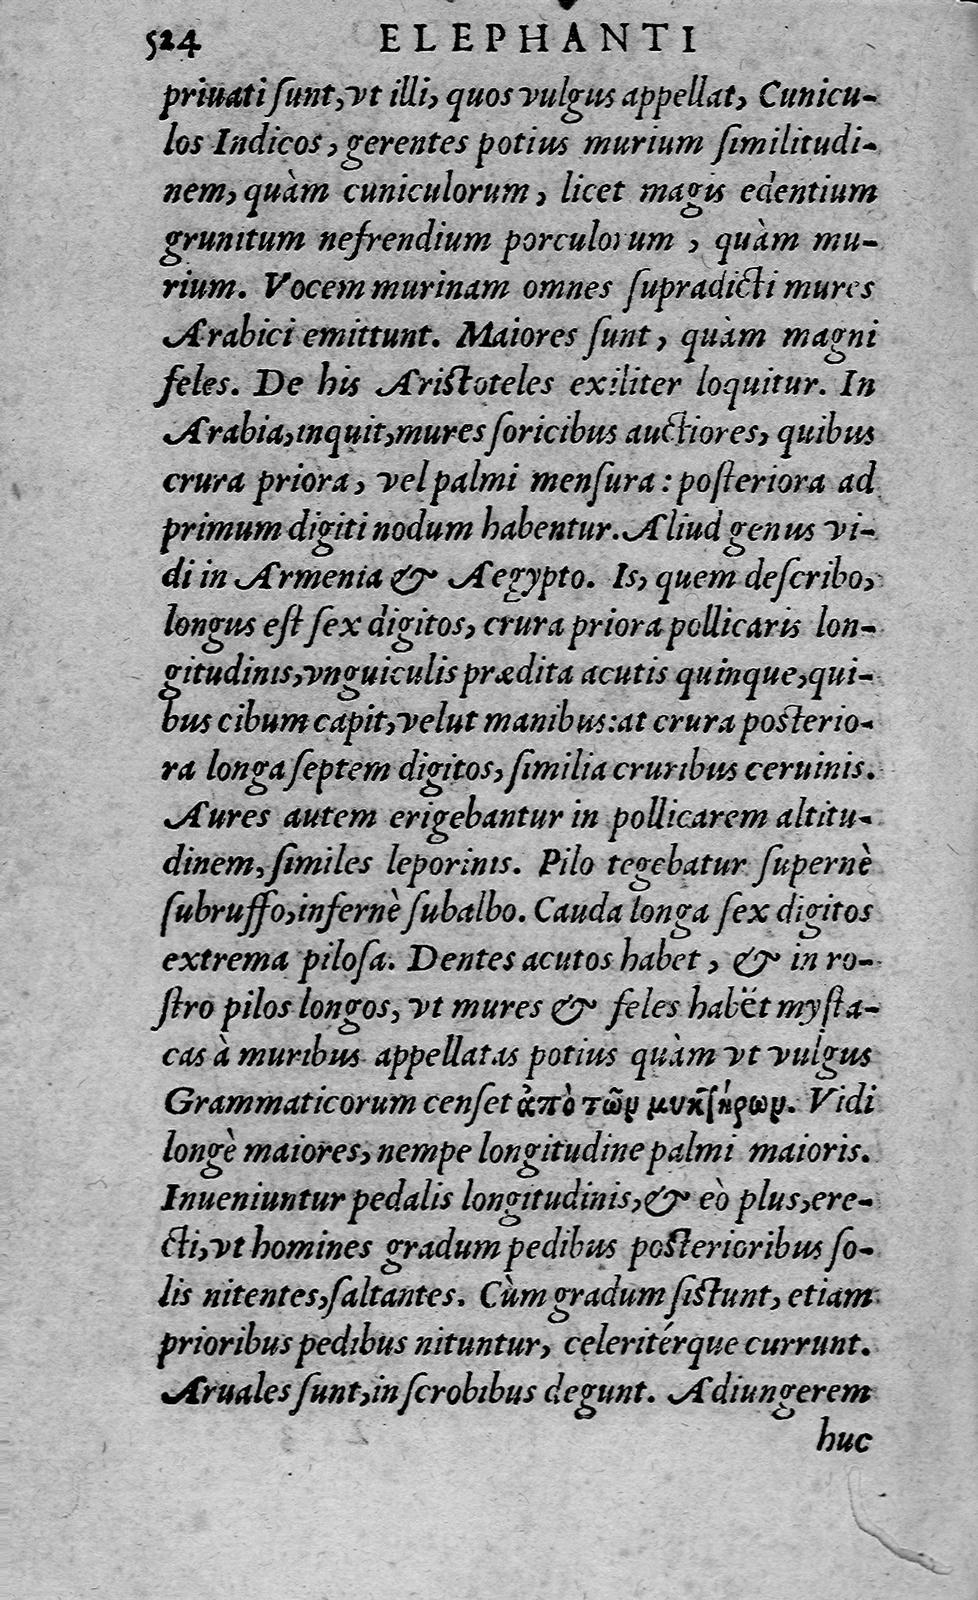 524 ELEPHANTI
priuati ſunt, vt illi, quos vulgus appellat, Cunicu-
los Indicos, gerentes potius murium ſimilitudi-
nem, quàm cuniculorum, licet magis edentium
grunitum nefrendium porculorum, quàm mu-
rium. Vocem murinam omnes ſupradicti mures
Arabici emittunt. Maiores ſunt, quàm magni
feles. De his Ariſtoteles exiliter loquitur. In
Arabia, inquit, mures ſoricibus auctiores, quibus
crura priora, vel palmi menſura: poſteriora ad
primum digiti nodum habentur. Aliud genus vi-
di in Armenia & Aegypto. Is, quem deſcribo,
longus eſt ſex digitos, crura priora pollicaris lon-
gitudinis, vnguiculis prædita acutis quinque, qui-
bus cibum capit, velut manibus: at crura poſterio-
ra longa ſeptem digitos, ſimilia cruribus ceruinis.
Aures autem erigebantur in pollicarem altitu-
dinem, ſimiles leporinis. Pilo tegebatur ſupernè
ſubruffo, infernè ſubalbo. Cauda longa ſex digitos
extrema piloſa. Dentes acutos habet, & in ro-
ſtro pilos longos, vt mures & feles habẽt myſta-
cas à muribus appellatas potius quàm vt vulgus
Grammaticorum cenſet ἀπὸ τῶν μυκτήρων. Vidi
longè maiores, nempe longitudine palmi maioris.
Inueniuntur pedalis longitudinis, & eò plus, ere-
cti, vt homines gradum pedibus poſterioribus ſo-
lis nitentes, ſaltantes. Cùm gradum ſiſtunt, etiam
prioribus pedibus nituntur, celeritérque currunt.
Aruales ſunt, in ſcrobibus degunt. Adiungerem
huc